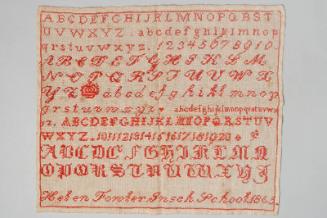 ABCDEFGHIJKLMNOPQRST
UVWXYZ. abcdefghijklmnop
qrstuvwxyz. 12345678910
ABCDEFGHIJKLM
NOPQRSTUVWX
YZ abcdefghiklmnop
qrstuvwxyz abcdefghijklmnopqrstuvwx
yz. ABCDEFGHIJKLMNOPQRSTUV
WXYZ. 1011121314151617181920
ABCDEFGHIJKLMN
OPQRSTUVWXYZ
Helen Insch School 1863